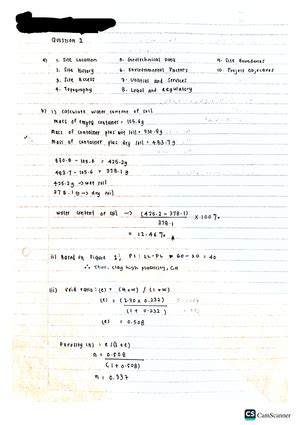 Question 1
a) 1. Site Location 5. Geotechnical Data 9. Site Boundaries
2. Site History 6. Environmental Factors 10. Project Objectives
3. Site Access 7. Utilities and Services
4. Topography 8. Legal and Regulatory
b) i) Calculate water content of soil
Mass of empty container = 105.6g
Mass of container plus wet soil = 530.8g
Mass of container plus dry soil = 483.7g
530.8 - 105.6 = 425.2g
483.7 - 105.6 = 378.1g
425.2g → wet soil
378.1g → dry soil
Water content of soil → (425.2 - 378.1) / 378.1 × 100%
= 12.46%
ii) Based on Figure 1, PI: LL-PL = 60-20 = 40
∴ Thus, clay high plasticity, CH
iii) Void ratio: (e) =
(e) = (2.70 × 0.232)
(1 + 0.232)
(e) = 0.508
Porosity (n) = e/(1+e)
n = 0.508
(1 + 0.508)
n = 0.337
CS CamScanner